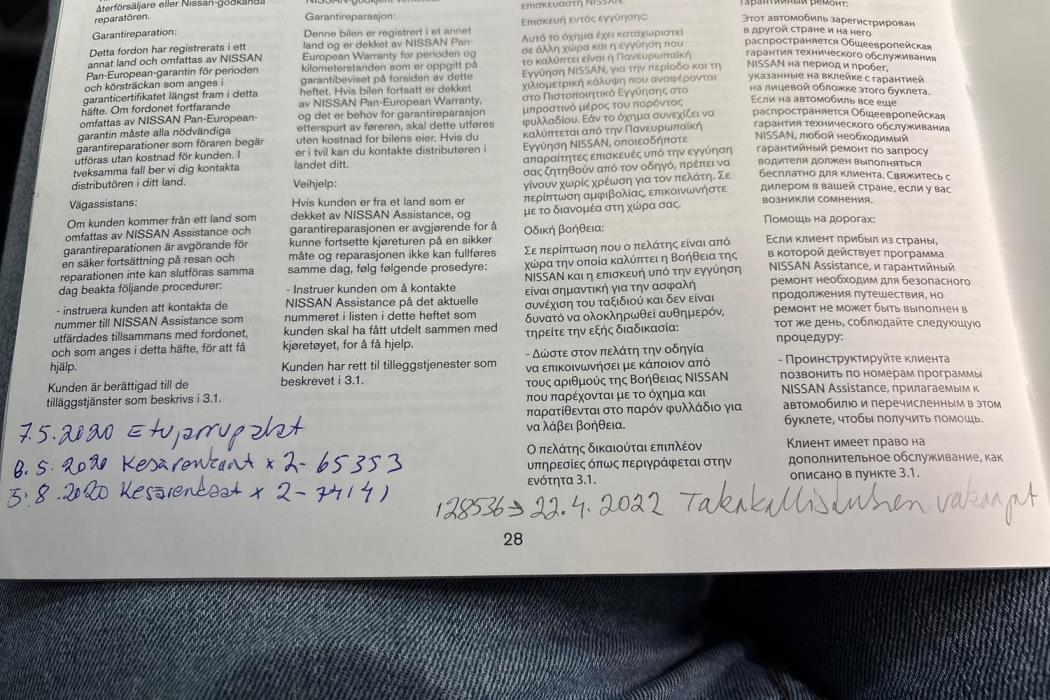 återförsäljare eller Nissan-godkända
reparatören.
Garantireparation:
Detta fordon har registrerats i ett
annat land och omfattas av NISSAN
Pan-European-garantin för perioden
och körsträckan som anges i
garanticertifikatet längst fram i detta
häfte. Om fordonet fortfarande
omfattas av NISSAN Pan-European-
garantin måste alla nödvändiga
garantireparationer som föraren begär
utföras utan kostnad för kunden. I
tveksamma fall ber vi dig kontakta
distributören i ditt land.
Vägassistans:
Om kunden kommer från ett land som
omfattas av NISSAN Assistance och
garantireparationen är avgörande för
en säker fortsättning på resan och
reparationen inte kan slutföras samma
dag beakta följande procedurer:
- instruera kunden att kontakta de
nummer till NISSAN Assistance som
utfärdades tillsammans med fordonet,
och som anges i detta häfte, för att få
hjälp.
Kunden är berättigad till de
tilläggstjänster som beskrivs i 3.1.
Garantireparasjon:
Denne bilen er registrert i et annet
land og er dekket av NISSAN Pan-
European Warranty for perioden og
kilometerstanden som er oppgitt på
garantibeviset på forsiden av dette
heftet. Hvis bilen fortsatt er dekket
av NISSAN Pan-European Warranty,
og det er behov for garantireparasjon
etterspurt av føreren, skal dette utføres
uten kostnad for bilens eier. Hvis du
er i tvil kan du kontakte distributøren i
landet ditt.
Veihjelp:
Hvis kunden er fra et land som er
dekket av NISSAN Assistance, og
garantireparasjonen er avgjørende for å
kunne fortsette kjøreturen på en sikker
måte og reparasjonen ikke kan fullføres
samme dag, følg følgende prosedyre:
- Instruer kunden om å kontakte
NISSAN Assistance på det aktuelle
nummeret i listen i dette heftet som
kunden skal ha fått utdelt sammen med
kjøretøyet, for å få hjelp.
Kunden har rett til tilleggstjenester som
beskrevet i 3.1.
επισκευαστή NISSAN.
Επισκευή εντός εγγύησης:
Αυτό το όχημα έχει καταχωριστεί
σε άλλη χώρα και η εγγύηση που
το καλύπτει είναι η Πανευρωπαϊκή
Εγγύηση NISSAN, για την περίοδο και τη
χιλιομετρική κάλυψη που αναφέρονται
στο Πιστοποιητικό Εγγύησης στο
μπροστινό μέρος του παρόντος
φυλλαδίου. Εάν το όχημα συνεχίζει να
καλύπτεται από την Πανευρωπαϊκή
Εγγύηση NISSAN, οποιεσδήποτε
απαραίτητες επισκευές υπό την εγγύηση
σας ζητηθούν από τον οδηγό, πρέπει να
γίνουν χωρίς χρέωση για τον πελάτη. Σε
περίπτωση αμφιβολίας, επικοινωνήστε
με το διανομέα στη χώρα σας.
Οδική βοήθεια:
Σε περίπτωση που ο πελάτης είναι από
χώρα την οποία καλύπτει η Βοήθεια της
NISSAN και η επισκευή υπό την εγγύηση
είναι σημαντική για την ασφαλή
συνέχιση του ταξιδιού και δεν είναι
δυνατό να ολοκληρωθεί αυθημερόν,
τηρείτε την εξής διαδικασία:
- Δώστε στον πελάτη την οδηγία
να επικοινωνήσει με κάποιον από
τους αριθμούς της Βοήθειας NISSAN
που παρέχονται με το όχημα και
παρατίθενται στο παρόν φυλλάδιο για
να λάβει βοήθεια.
Ο πελάτης δικαιούται επιπλέον
υπηρεσίες όπως περιγράφεται στην
ενότητα 3.1.
Гарантийный ремонт:
Этот автомобиль зарегистрирован
в другой стране и на него
распространяется Общеевропейская
гарантия технического обслуживания
NISSAN на период и пробег,
указанные на вклейке с гарантией
на лицевой обложке этого буклета.
Если на автомобиль все еще
распространяется Общеевропейская
гарантия технического обслуживания
NISSAN, любой необходимый
гарантийный ремонт по запросу
водителя должен выполняться
бесплатно для клиента. Свяжитесь с
дилером в вашей стране, если у вас
возникли сомнения.
Помощь на дорогах:
Если клиент прибыл из страны,
в которой действует программа
NISSAN Assistance, и гарантийный
ремонт необходим для безопасного
продолжения путешествия, но
ремонт не может быть выполнен в
тот же день, соблюдайте следующую
процедуру:
- Проинструктируйте клиента
позвонить по номерам программы
NISSAN Assistance, прилагаемым к
автомобилю и перечисленным в этом
буклете, чтобы получить помощь.
Клиент имеет право на
дополнительное обслуживание, как
описано в пункте 3.1.
7.5.2020 Etujarrupalat
8.5.2020 Kesärenkaat x 2 - 65353
5.8.2020 Kesärenkaat x 2 - 74141
128536 → 22.4.2022 Takakallistuksen vakaajat
28